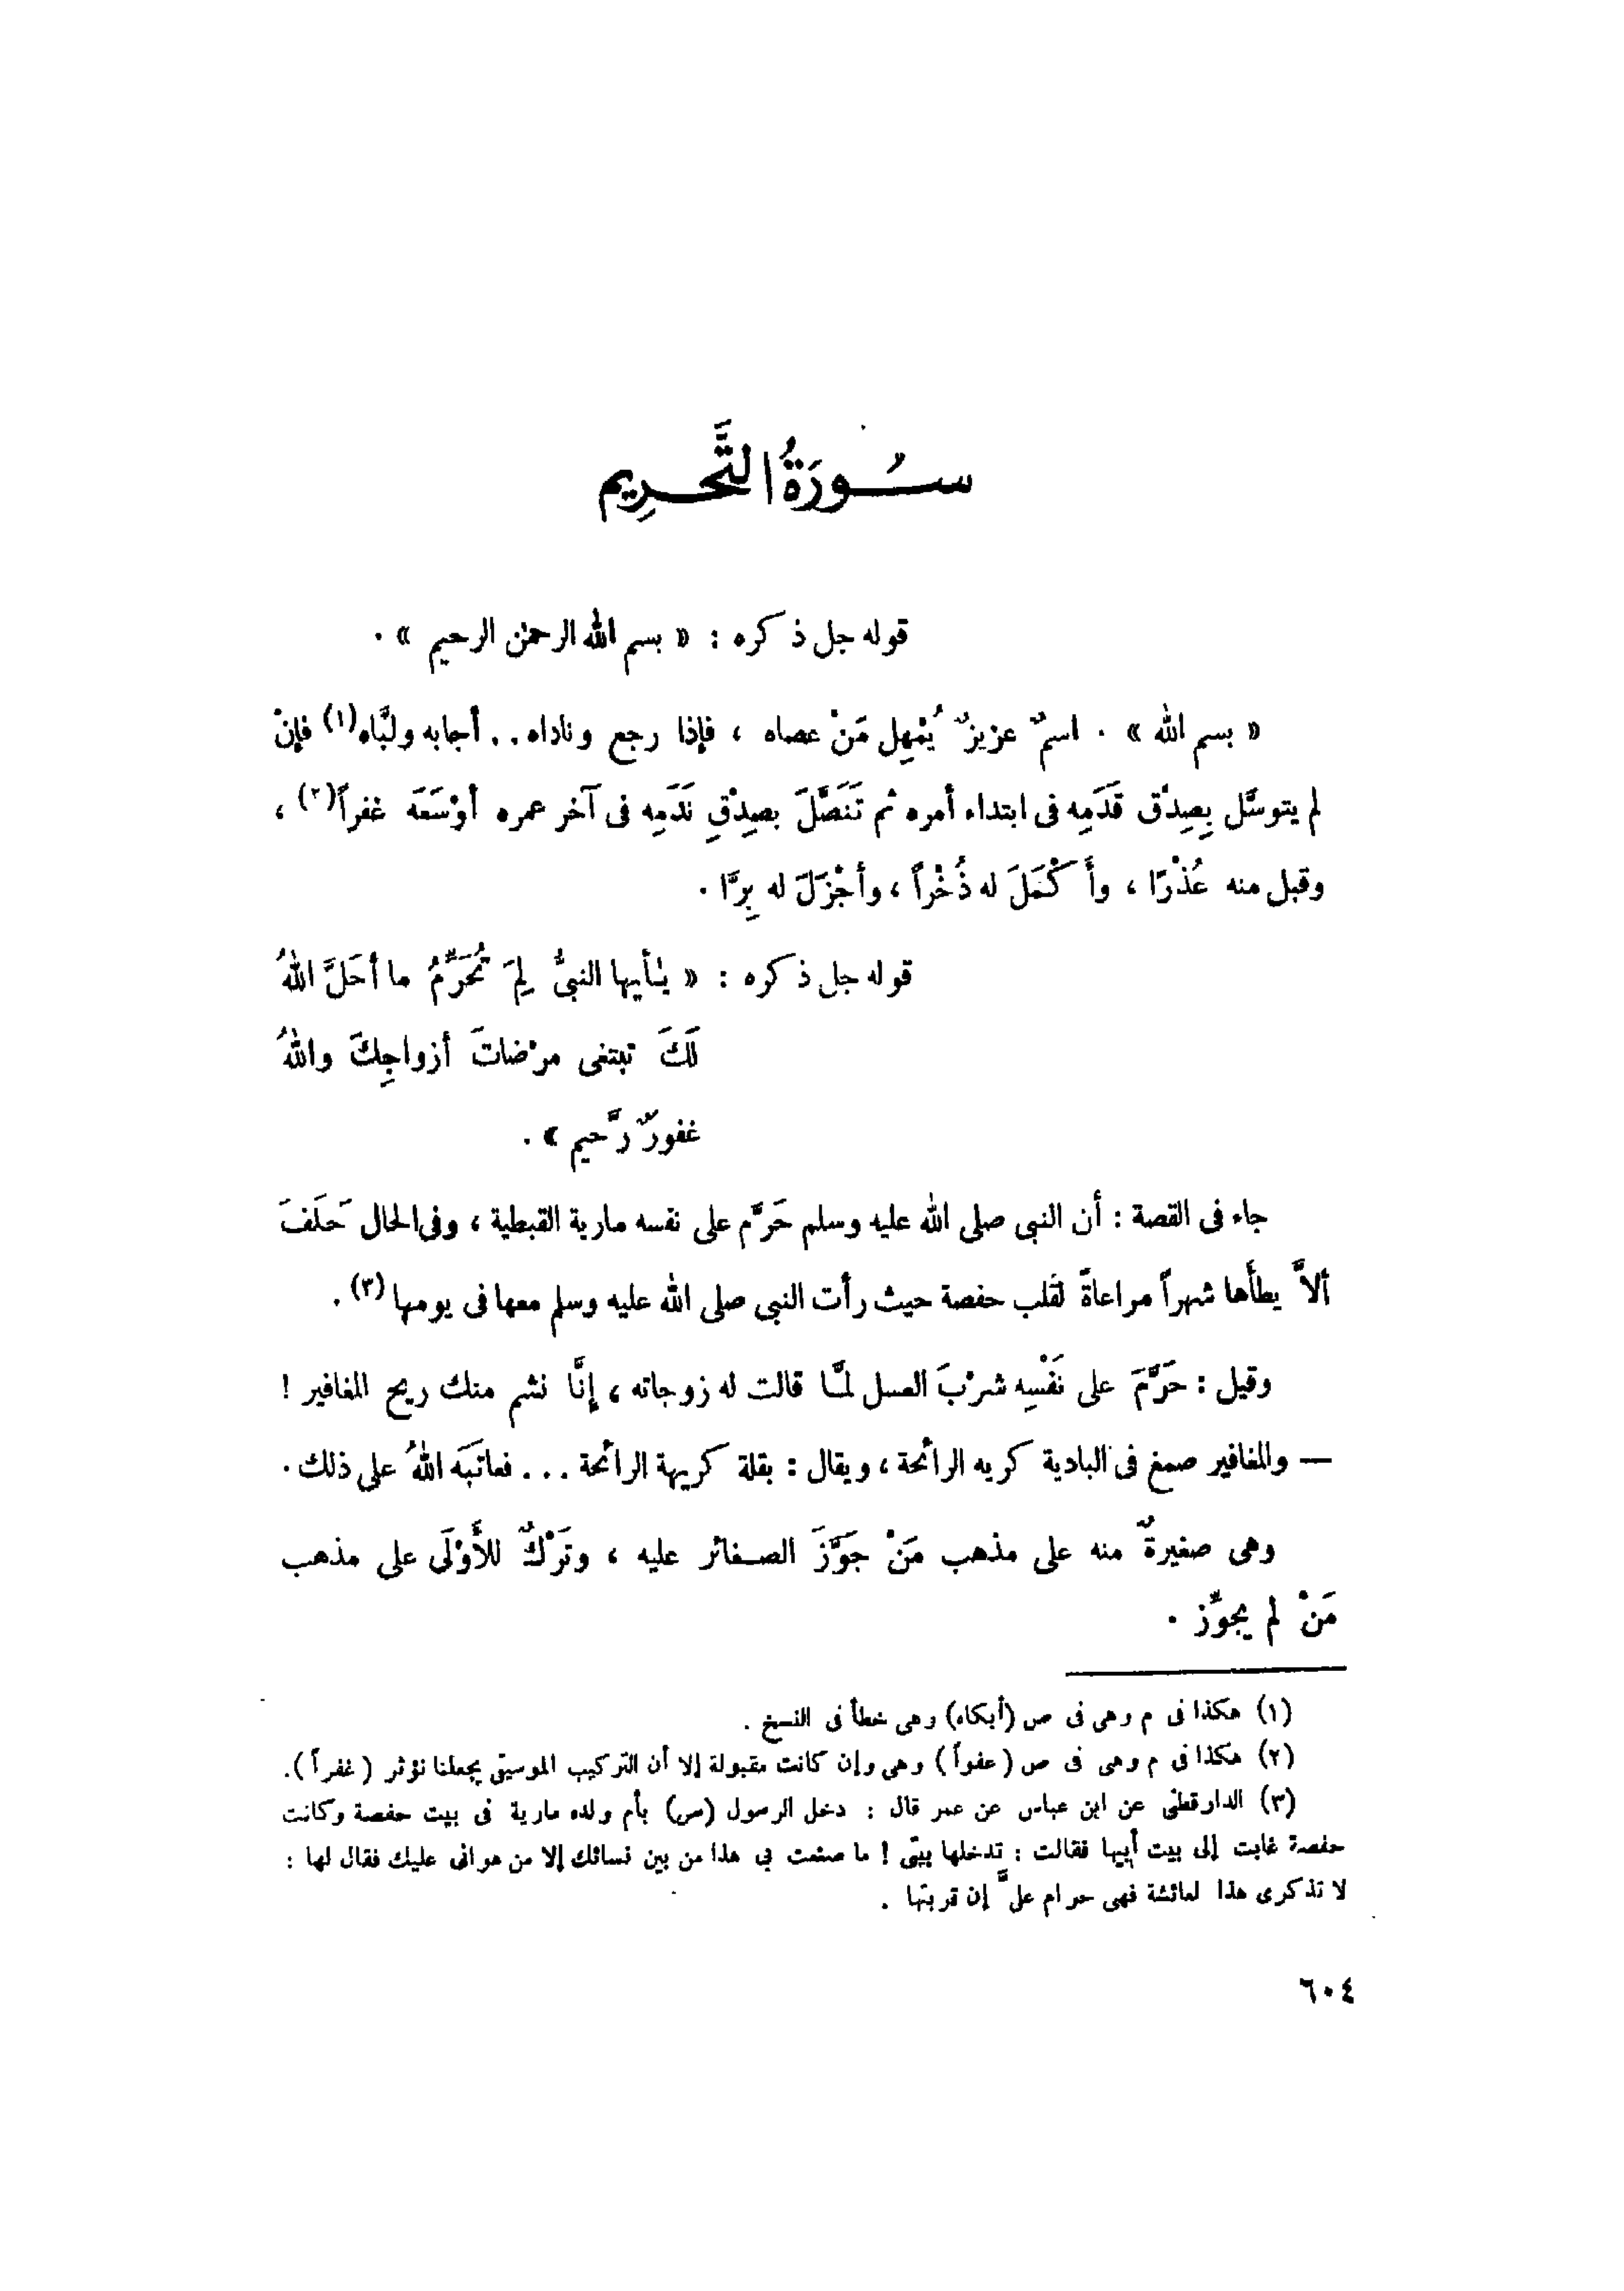 سُورَةُ التَّحرِيم
قوله جل ذكره : « بسم الله الرحمٰن الرحيم » .
« بسم الله » . اسمٌ عزيزٌ يُمْهِل مَنْ عصاه ، فإذا رجع وناداه . . أجابه ولبَّاه(١) فإنْ
لم يتوسَّل بِصِدْق قَدَمِه فى ابتداء أمره ثم تَنَصَّلَ بصِدْقِ نَدَمِه فى آخر عمره أوْسَعَه غفراً(٢) ،
وقبل منه عُذْرًا ، وأكْمَلَ له ذُخْراً ، وأجْزَلَ له بِرًّا .
قوله جل ذكره : « يٰأيها النبىُّ لِمَ تُحَرِّمُ ما أحَلَّ اللهُ
لَكَ تبتغى مرْضاتَ أزواجِكَ واللهُ
غفورٌ رَّحيم » .
جاء فى القصة : أن النبى صلى الله عليه وسلم حَرَّم على نفسه مارية القبطية ، وفى الحال حَلَفَ
ألاَّ يطأَها شهراً مراعاةً لقلب حفصة حيث رأت النبى صلى الله عليه وسلم معها فى يومها (٣) .
وقيل : حَرَّمَ على نَفْسِه شرْبَ العسل لمَّا قالت له زوجاته ، إنَّا نشم منك ريح المغافير !
— والمغافير صمغ فى البادية كريه الرائحة ، ويقال : بقلة كريهة الرائحة . . . فعاتَبَه اللهُ على ذلك .
وهى صغيرةٌ منه على مذهب مَنْ جَوَّزَ الصغائر عليه ، وتَرْكٌ للأَوْلَى على مذهب
مَنْ لم يجوِّز .
(١) هكذا فى م وهى فى ص (أبكاه) وهى خطأ فى النسخ .
(٢) هكذا فى م وهى فى ص (عفواً) وهى وإن كانت مقبولة إلا أن التركيب الموسيقى يجعلنا نؤثر (غفراً) .
(٣) الدارقطنى عن ابن عباس عن عمر قال : دخل الرسول (ص) بأم ولده مارية فى بيت حفصة وكانت
حفصة غابت إلى بيت أبيها فقالت : تدخلها بيتى ! ما صنعت بى هذا من بين نسائك إلا من هوانى عليك فقال لها :
لا تذكرى هذا لعائشة فهى حرام علىَّ إن قربتها .
٦٠٤